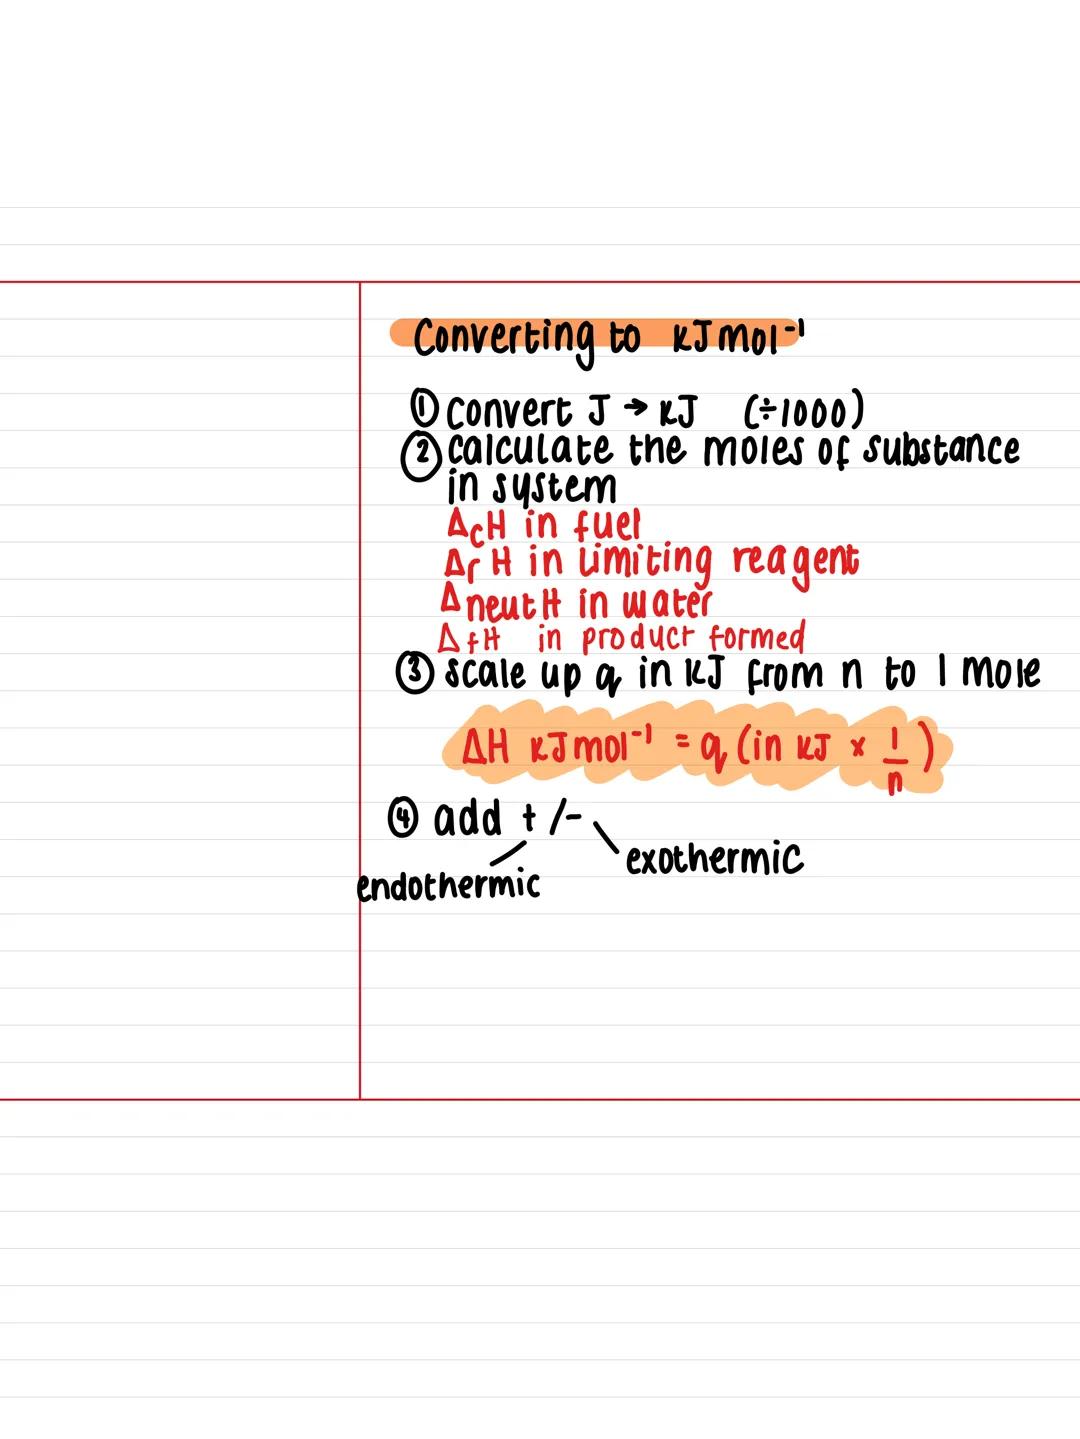 Converting to kJmol⁻¹
① convert J → kJ (÷1000)
② calculate the moles of substance
in system
ΔcH in fuel
ΔrH in limiting reagent
ΔneutH in water
ΔfH in product formed
③ scale up q in kJ from n to 1 mole
ΔH kJmol⁻¹ = q (in kJ × 1/n)
④ add +/-
exothermic
endothermic